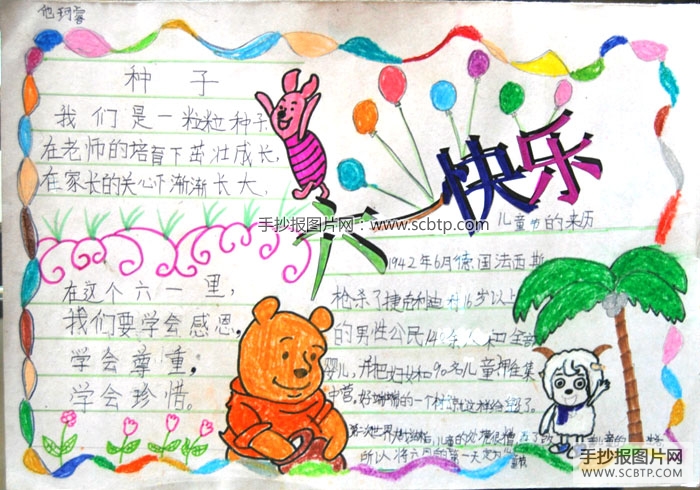 种子
我们是一粒粒种子
在老师的培育下茁壮成长,
在家长的关心下渐渐长大,
在这个六一里,
我们要学会感恩,
学会尊重,
学会珍惜。
六一快乐
手抄报图片网:www.scbtp.com
儿童节的来历
1942年6月德国法西斯
枪杀了捷克利迪村16岁以上
的男性公民140余人和全部
婴儿,并把妇女和90名儿童押
集中营。好端端的一个村
所以将六月的第一天定为
手抄报图片网
WWW.SCBTP.COM